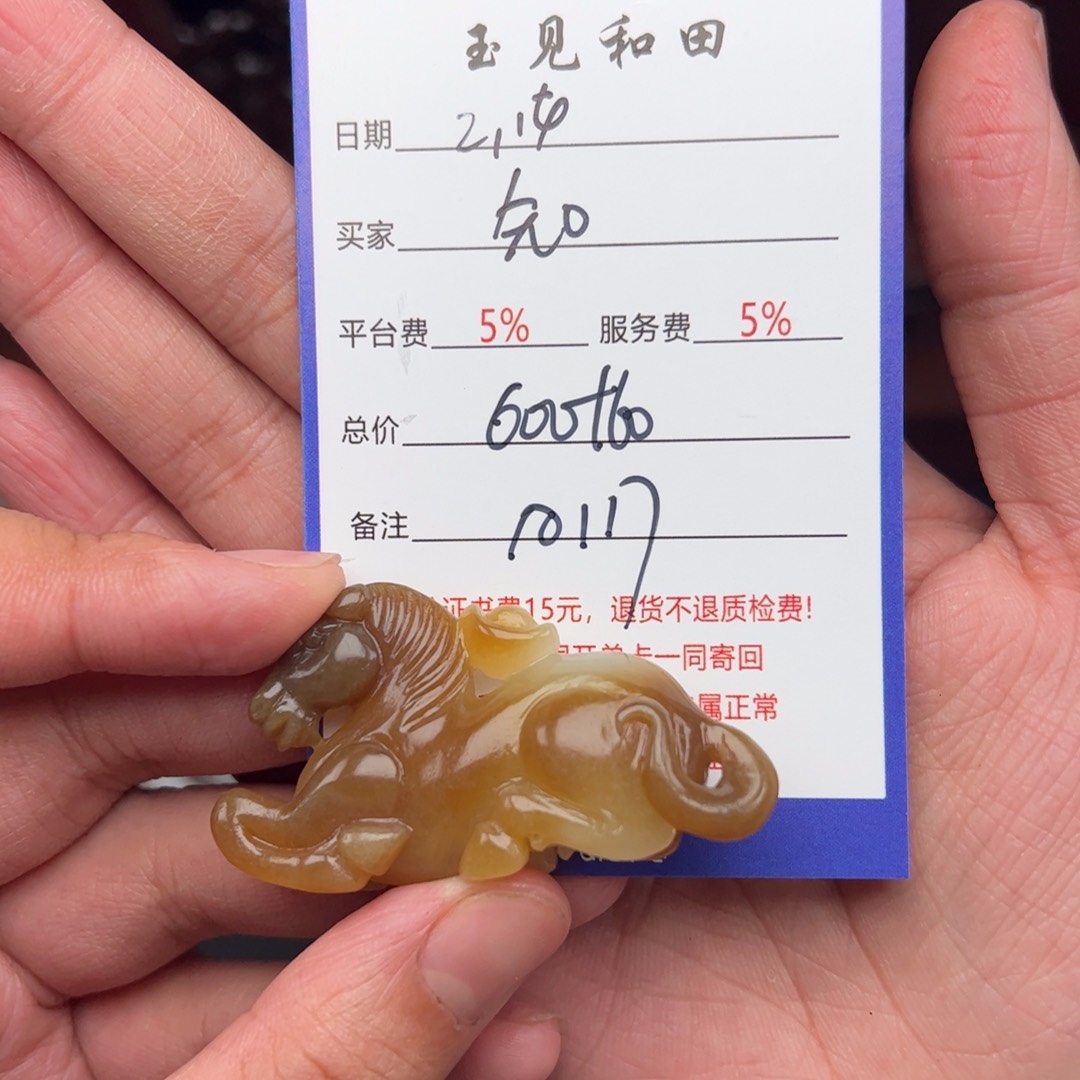 玉见和田
日期 2,14
买家
平台费 5% 服务费 5%
总价 600+60
备注 10117
证书费15元，退货不退质检费!
卡一同寄回
属正常